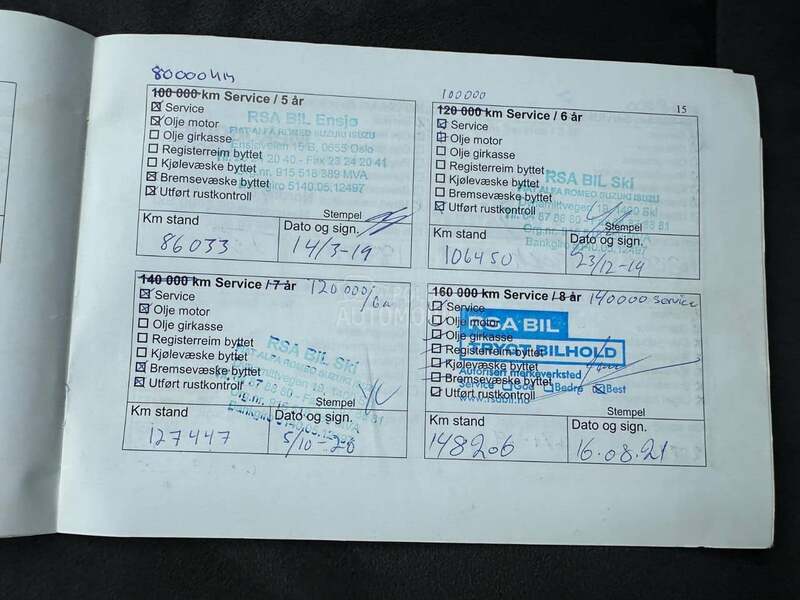 15
80000 km
100 000 km Service / 5 år
Service
Olje motor
Olje girkasse
Registerreim byttet
Kjølevæske byttet
Bremsevæske byttet
Utført rustkontroll
RSA BIL Ensjø
FIAT ALFA ROMEO SUZUKI ISUZU
Ensjøveien 0655 Oslo
20 40 - Fax 23 24 20 41
nr. 915 518 389 MVA
5140.05.12497
Stempel
Km stand
Dato og sign.
86033
14/3-19
100000
120 000 km Service / 6 år
Service
Olje motor
Olje girkasse
Registerreim byttet
Kjølevæske byttet
Bremsevæske byttet
Utført rustkontroll
RSA BIL Ski
FIAT ALFA ROMEO SUZUKI ISUZU
Stempel
Km stand
Dato og sign.
106450
23/12-19
140 000 km Service / 7 år
120000
Service
Olje motor
Olje girkasse
Registerreim byttet
Kjølevæske byttet
Bremsevæske byttet
Utført rustkontroll
RSA BIL Ski
FIAT ALFA ROMEO SUZUKI ISUZU
Stempel
Km stand
Dato og sign.
127447
5/10-20
160 000 km Service / 8 år
140000 service
Service
Olje motor
Olje girkasse
Registerreim byttet
Kjølevæske byttet
Bremsevæske byttet
Utført rustkontroll
RSA BIL
TRYGT BILHOLD
Autorisert merkeverksted
Service God Bedre Best
www.rsabil.no
Stempel
Km stand
Dato og sign.
148206
16.08.21